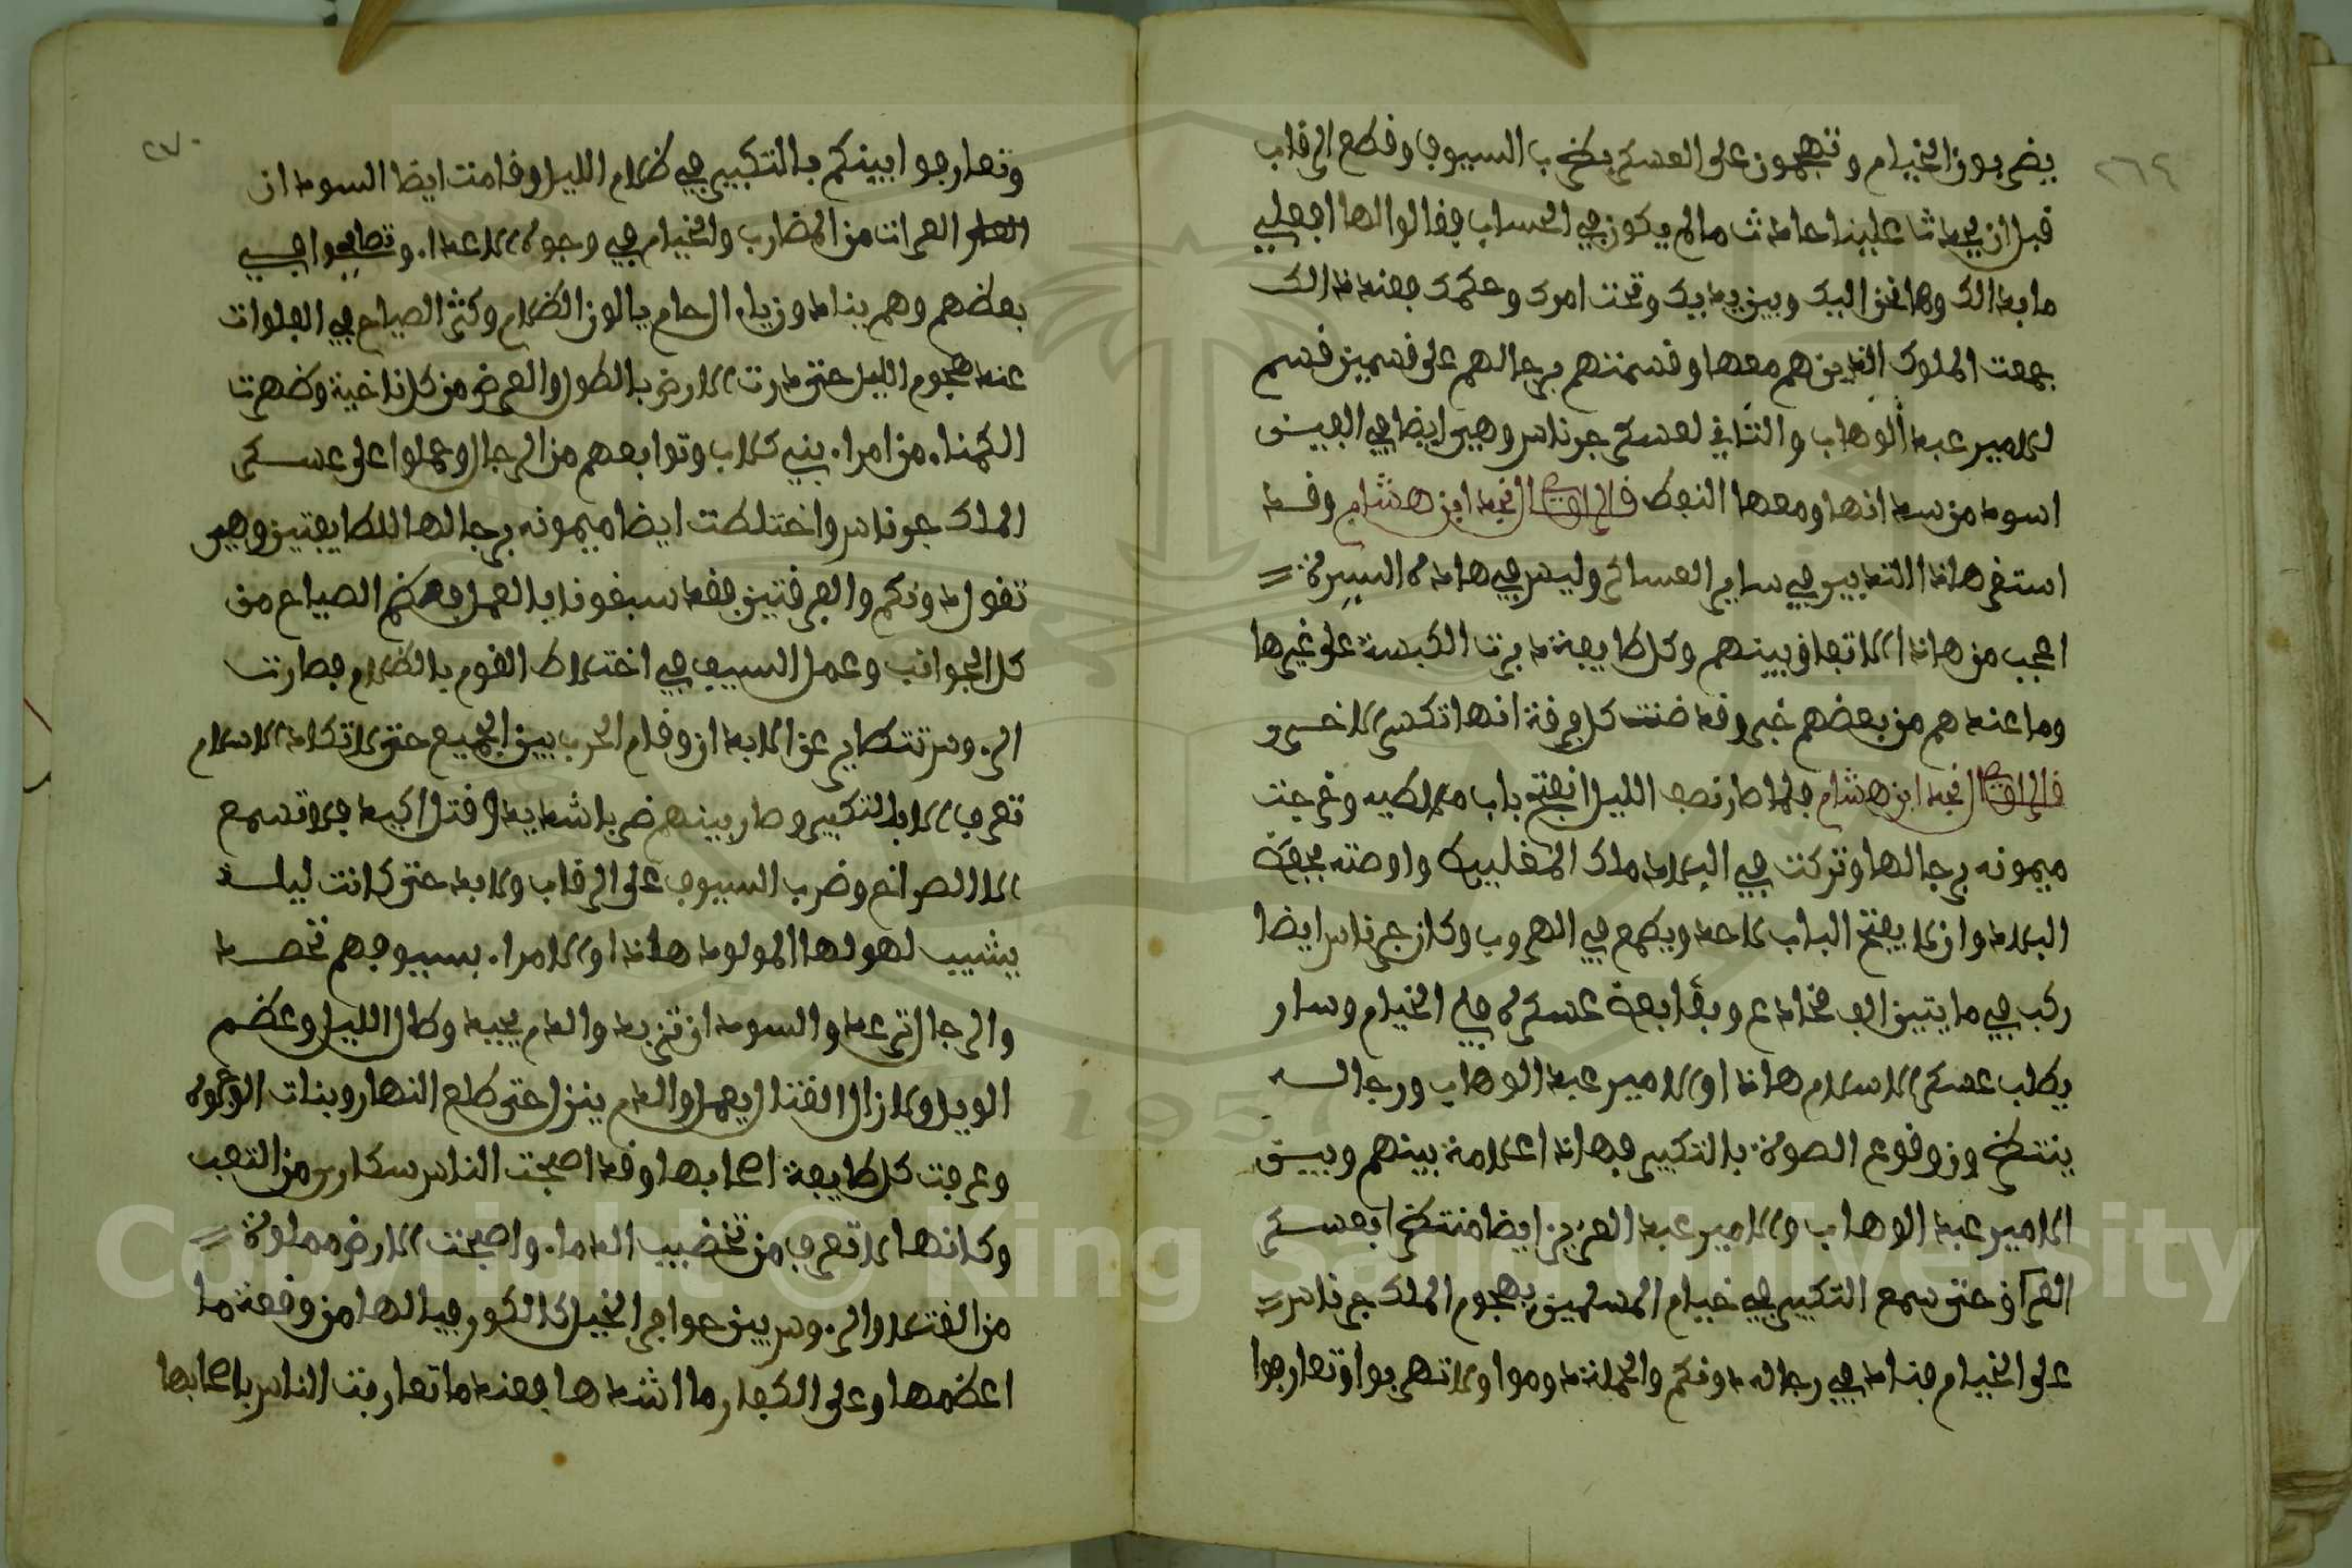 ٢٦٩
يضربون الخيام وتهجمون على العسكر بضرب السيوف وقطع الرقاب
قبل ان يحدثا علينا حادث مالم يكون في الحساب فقالوا لها افعلي
ما بدالك وها نحن اليك وبين يديك وتحت امرك وحكمك فعند ذالك
جمعت الملوك الذين هم معها وقسمتهم برجالهم على قسمين قسم
للامير عبد الوهاب والثاني لعسكر جرناس وهي ايضا في الفين
اسود من سودانها ومعها النفط قال الراوي نجد ابن هشام وقد
استقر هاذا التدبير في ساير العساكر وليس في هاذه السيرة
اعجب من هاذا الاتفاق بينهم وكل طايفة دبرت الكبسة على غيرها
وما عندهم من بعضهم خبر وقد ضنت كل فرقة انها تكسر الاخرى
قال الراوي نجد ابن هشام فلما صار نصف الليل انفتح باب ملاطيه وخرجت
ميمونه برجالها وتركت في البلاد ملك المغليبك واوصته بحفظ
البلاد وان لا يفتح الباب لاحد ويطمع في الهروب وكان جرناس ايضا
ركب في مايتين الف مخادع وبقا بعض عسكره في الخيام وسار
يطلب عسكر الاسلام هاذا والامير عبد الوهاب ورجاله
ينتظرون وقوع الصوة بالتكبير فهاذا علامة بينهم وبين
الامير عبد الوهاب والامير عبد العزيز ايضا منتظر بعسكر
العراق حتى سمع التكبير في خيام المسلمين بهجوم الملك جرناس
على الخيام فنادى في رجاله دونكم والحملة دوموا ولا تهربوا وتعارفوا
٢٧٠
وتعارفوا بينكم بالتكبير في ظلام الليل وقامت ايضا السودان
العراة من المضارب والخيام في وجوه الاعدا. وتصايحوا في
بعضهم وهم بنادون يال حام يالون الظلام وكثر الصياح في الفلوات
عند هجوم الليل حتى دارت الارض بالطول والعرض من كل ناحية وظهرت
الكمناء من امراء بني كلاب وتوابعهم من الرجال وحملوا على عسكر
الملك جرناس واختلطت ايضا ميمونه برجالها الطايفتين وهي
تقول دونكم والفرقتين فقد سبقونا بالعمل فعظم الصياح من
كل الجوانب وعمل السيف في اختلاط القوم بالظلام فصارت
الروس تتطاير عن الابدان وقام الحرب بين الجميع حتى لا تكاد الاسلام
تعرف الا بالتكبير وصار بينهم ضربا شديد وقتل اكيد فلا تسمع
الا الصرائخ وضرب السيوف على الرقاب ولا بد حتى كانت ليلة
يشيب لهولها المولود هاذا والامراء بسيوفهم تحصد
والرجال ترعد والسودان تزبد والدم يجمد وطال الليل وعظم
الويل ولا زال القتال يعمل والدم ينزل حتى طلع النهار وبنات الوجوه
وعرفت كل طايفة اصحابها وقد اصبحت الناس سكارى من التعب
وكانها لا تعرف من تخضيب الدماء واصبحت الارض مملوة
من القتلا والروس بين حوافر الخيل كالكور فيالها من وقعة ما
اعظمها وعلى الكفار ما اشدها فعند ما تعارفت الناس باصحابها
Copyright © King Saud University
1957